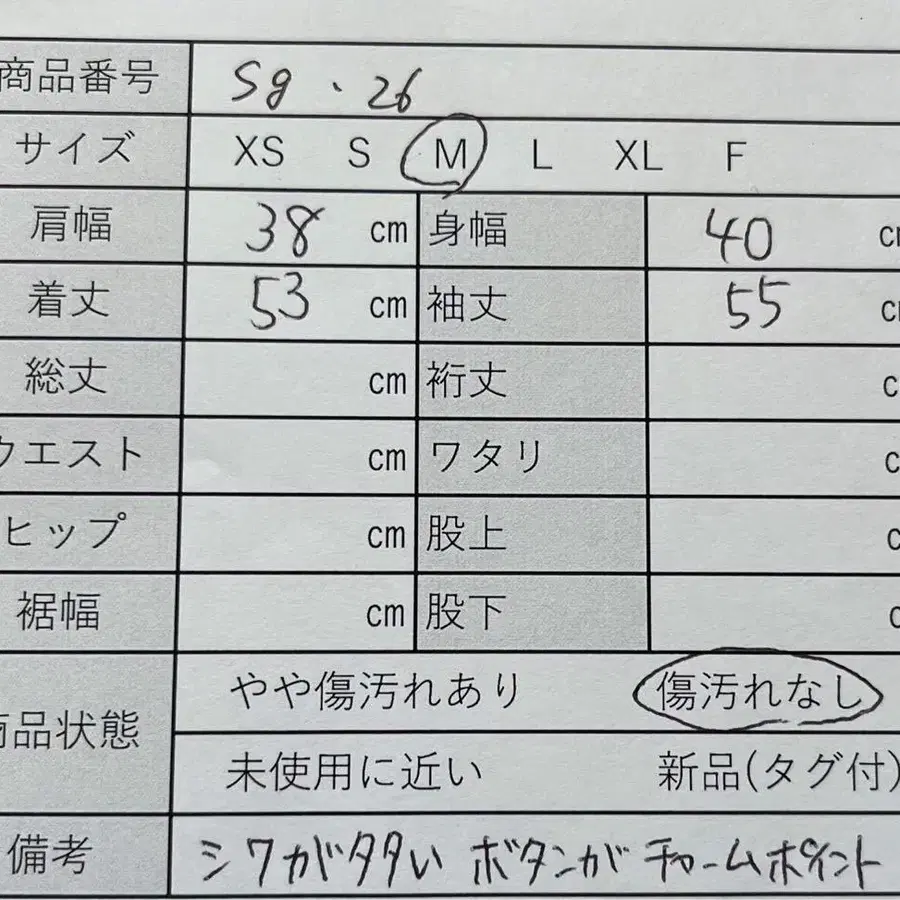 商品番号 Sg・26
サイズ XS S M L XL F
肩幅 38 cm 身幅 40 cm
着丈 53 cm 袖丈 55 cm
総丈 cm 裄丈 c
ウエスト cm ワタリ c
ヒップ cm 股上 c
裾幅 cm 股下 c
商品状態 やや傷汚れあり 傷汚れなし
未使用に近い 新品(タグ付)
備考 シワが ボタンが チャームポイント